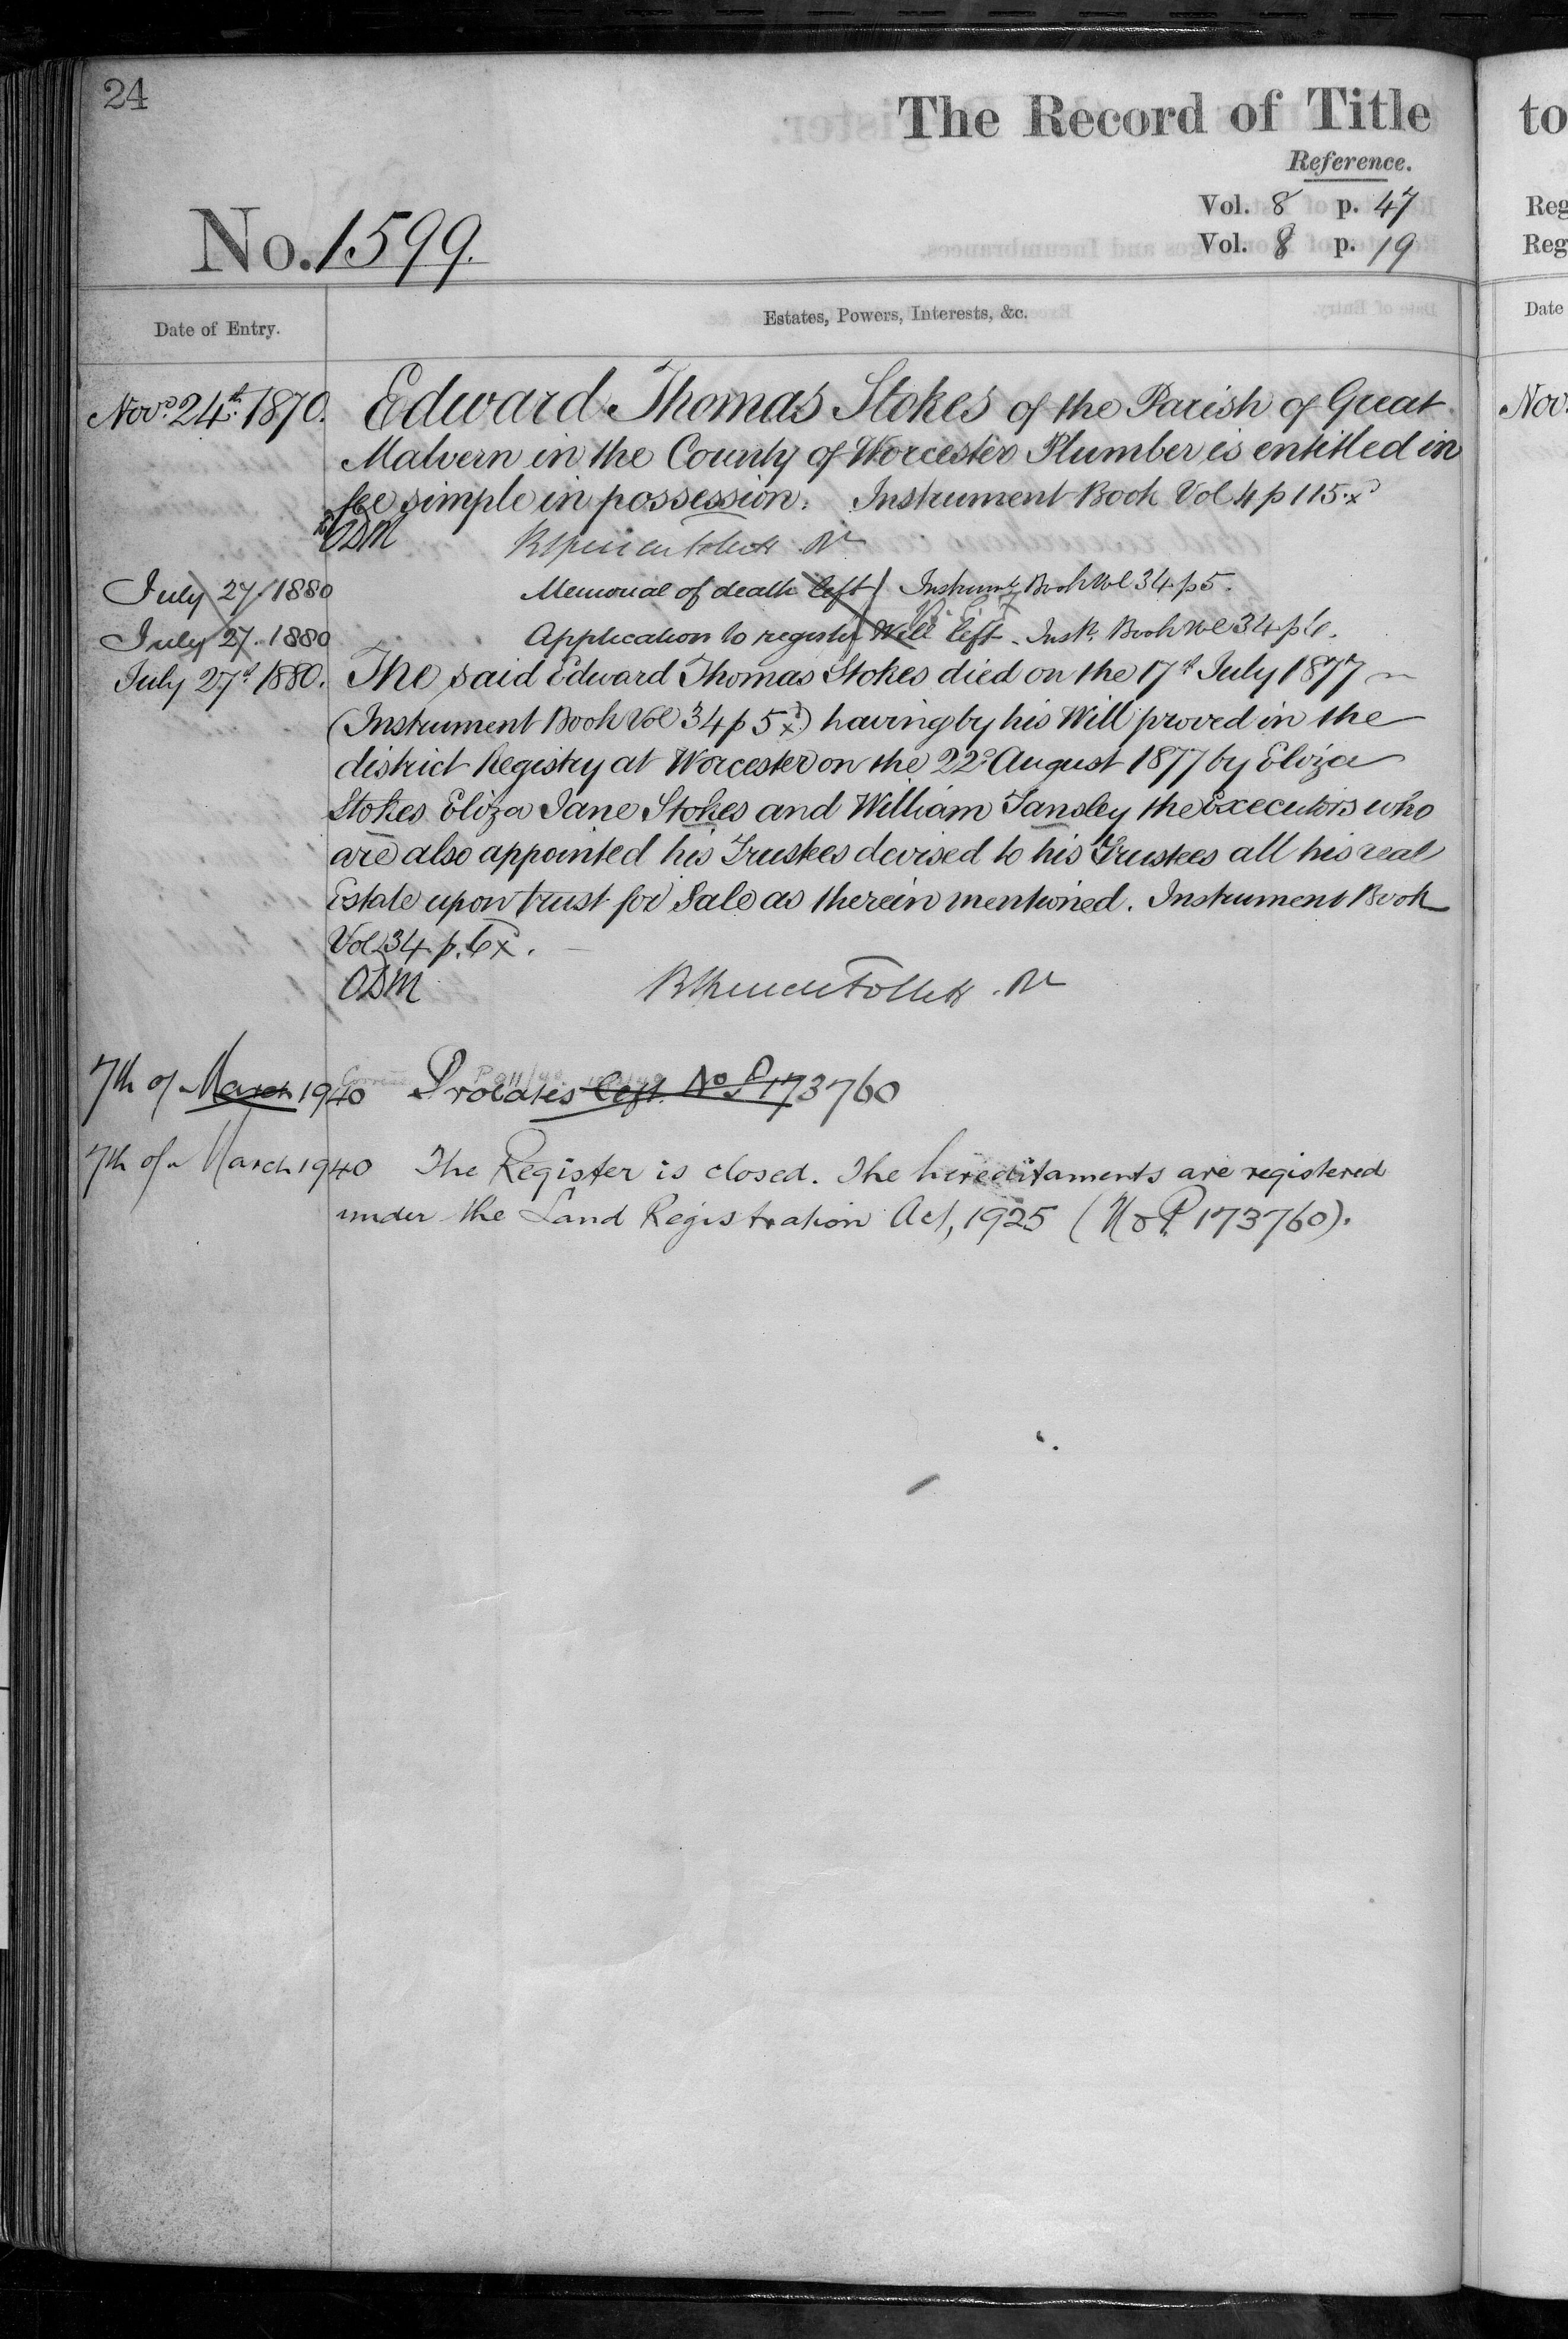 24
The Record of Title
to
Reference.
Vol. 8 p. 47
Reg
No. 1599.
Vol. 8 p. 19
Reg
Date of Entry.
Estates, Powers, Interests, &c.
Date
Novr 24th 1870.
Edward Thomas Stokes of the Parish of Great
Nov.
Malvern in the County of Worcester Plumber is entitled in
fee simple in possession. Instrument Book Vol 4 p 115 xd
ODM
July 27. 1880
Memorial of death left Instrumt Book Vol 34 p 5.
July 27. 1880
Application to register Will left. Inst. Book Vol 34 p 6.
July 27th 1880.
The said Edward Thomas Stokes died on the 17th July 1877
(Instrument Book Vol 34 p 5 xd) having by his Will proved in the
district Registry at Worcester on the 22d August 1877 by Eliza
Stokes Eliza Jane Stokes and William Tansley the Executors who
are also appointed his Trustees devised to his Trustees all his real
Estate upon trust for Sale as therein mentioned. Instrument Book
Vol 34 p. 6 xd.
ODM
Follett
7th of March 1940
Probates left. No P 173760
7th of March 1940
The Register is closed. The hereditaments are registered
under the Land Registration Act, 1925 (No P. 173760).